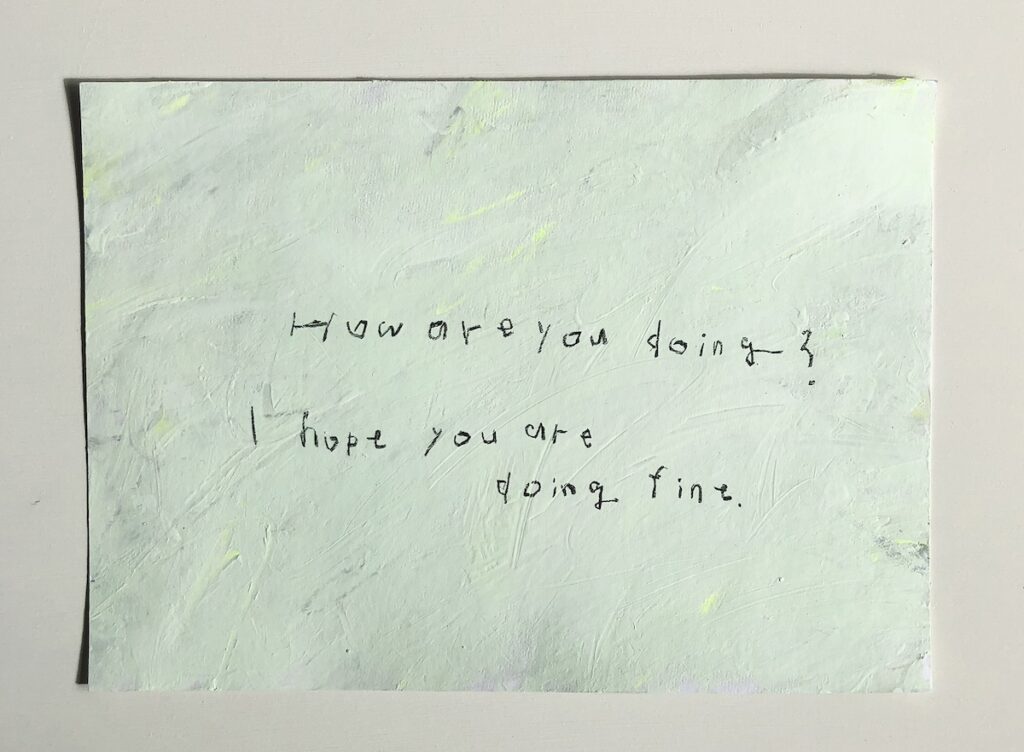 How are you doing?
I hope you are
doing fine.